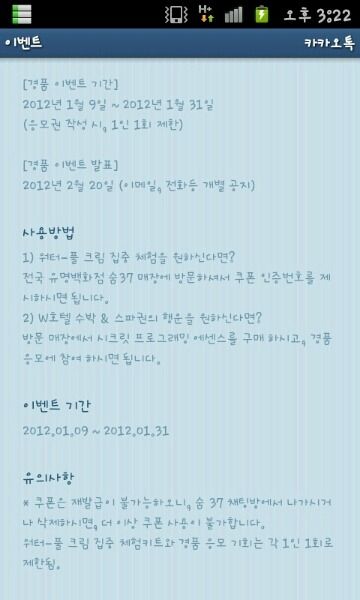 오후 3:22
이벤트 카카오톡
[경품 이벤트 기간]
2012년 1월 9일 ~ 2012년 1월 31일
(응모권 작성 시, 1인 1회 제한)
[경품 이벤트 발표]
2012년 2월 20일 (이메일, 전화등 개별 공지)
사용방법
1) 워터-풀 크림 집중 체험을 원하신다면?
전국 유명백화점 숨37 매장에 방문하셔서 쿠폰 인증번호를 제
시하시면 됩니다.
2) W호텔 수박 & 스파권의 행운을 원하신다면?
방문 매장에서 시크릿 프로그래밍 에센스를 구매 하시고, 경품
응모에 참여 하시면 됩니다.
이벤트 기간
2012.01.09 ~ 2012.01.31
유의사항
* 쿠폰은 재발급이 불가능하오니, 숨 37 채팅방에서 나가시거
나 삭제하시면, 더 이상 쿠폰 사용이 불가합니다.
워터-풀 크림 집중 체험키트와 경품 응모 기회는 각 1인 1회로
제한됨.